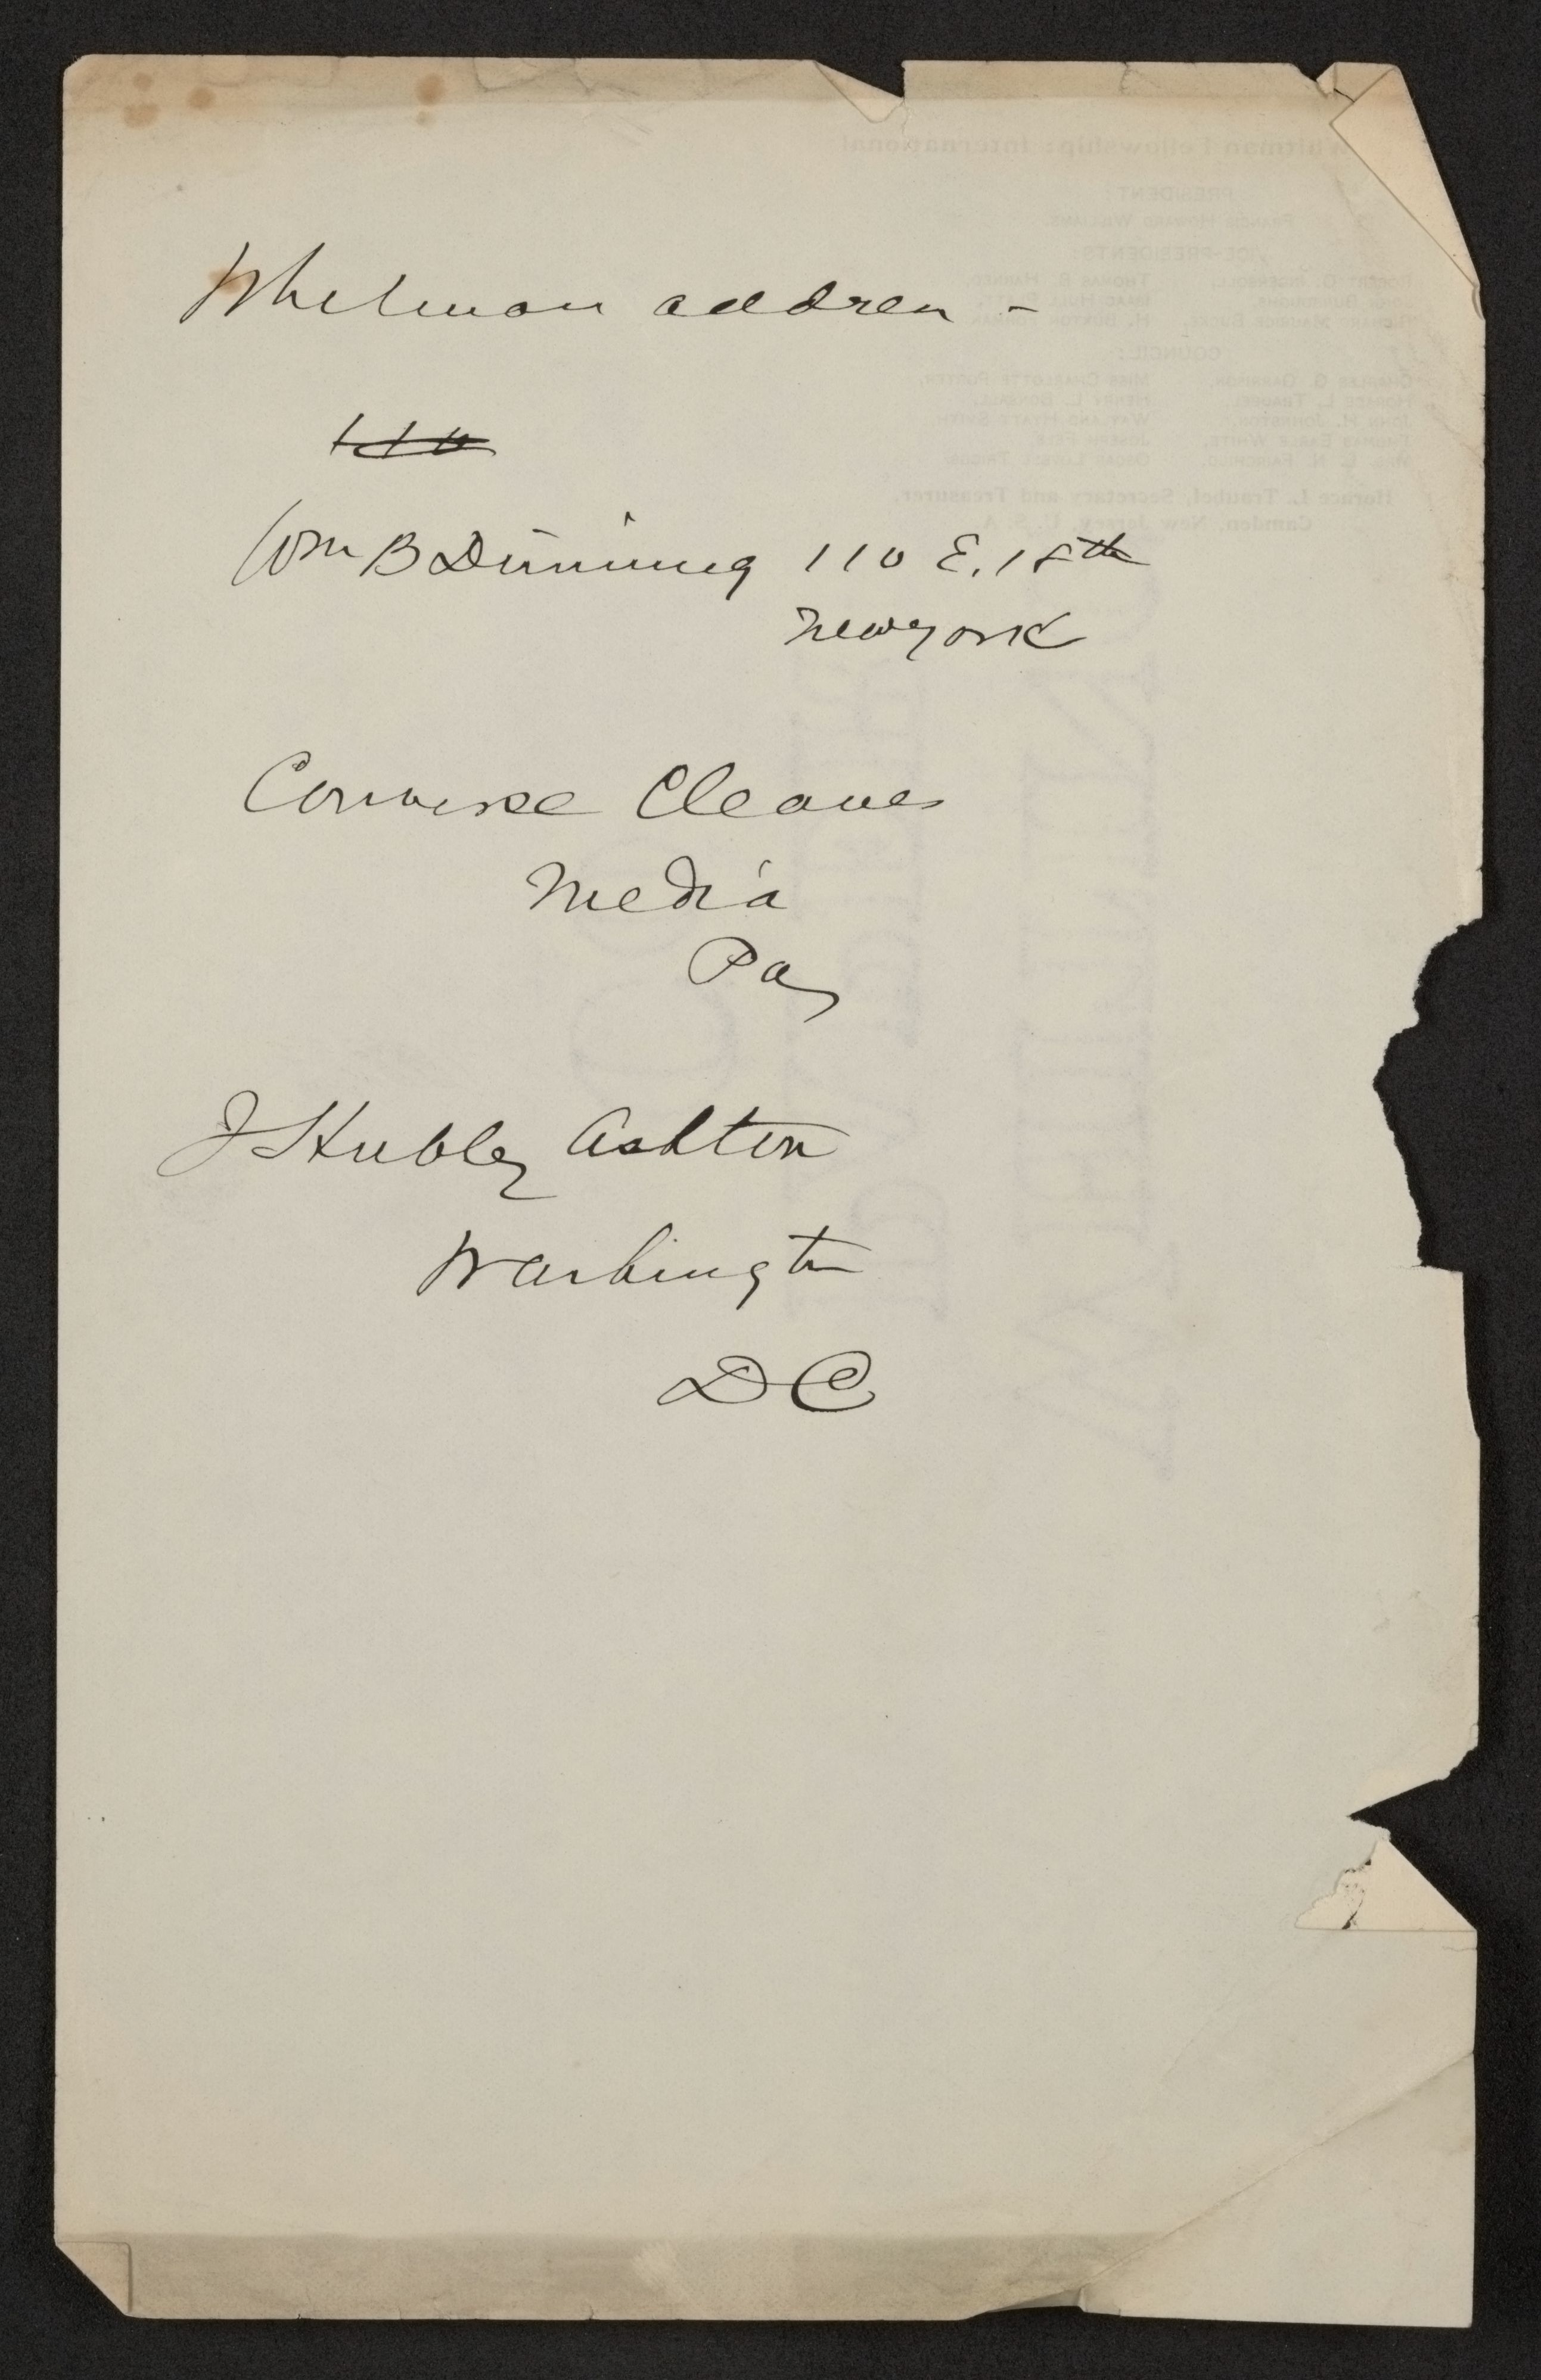 Whitman address -
110
Wm B Dinning 110 E. 18th
New York
Converse Cleaves
Media
Pa
J Hubley Ashton
Washington
D C